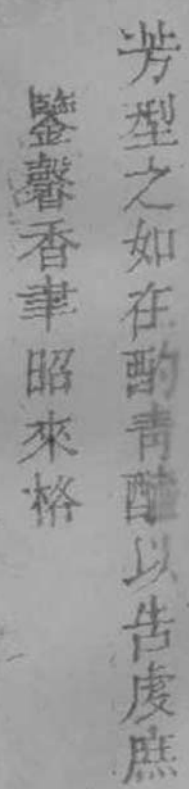 芳型之如在酌青醑以告虔庶
鑒馨香聿昭來格